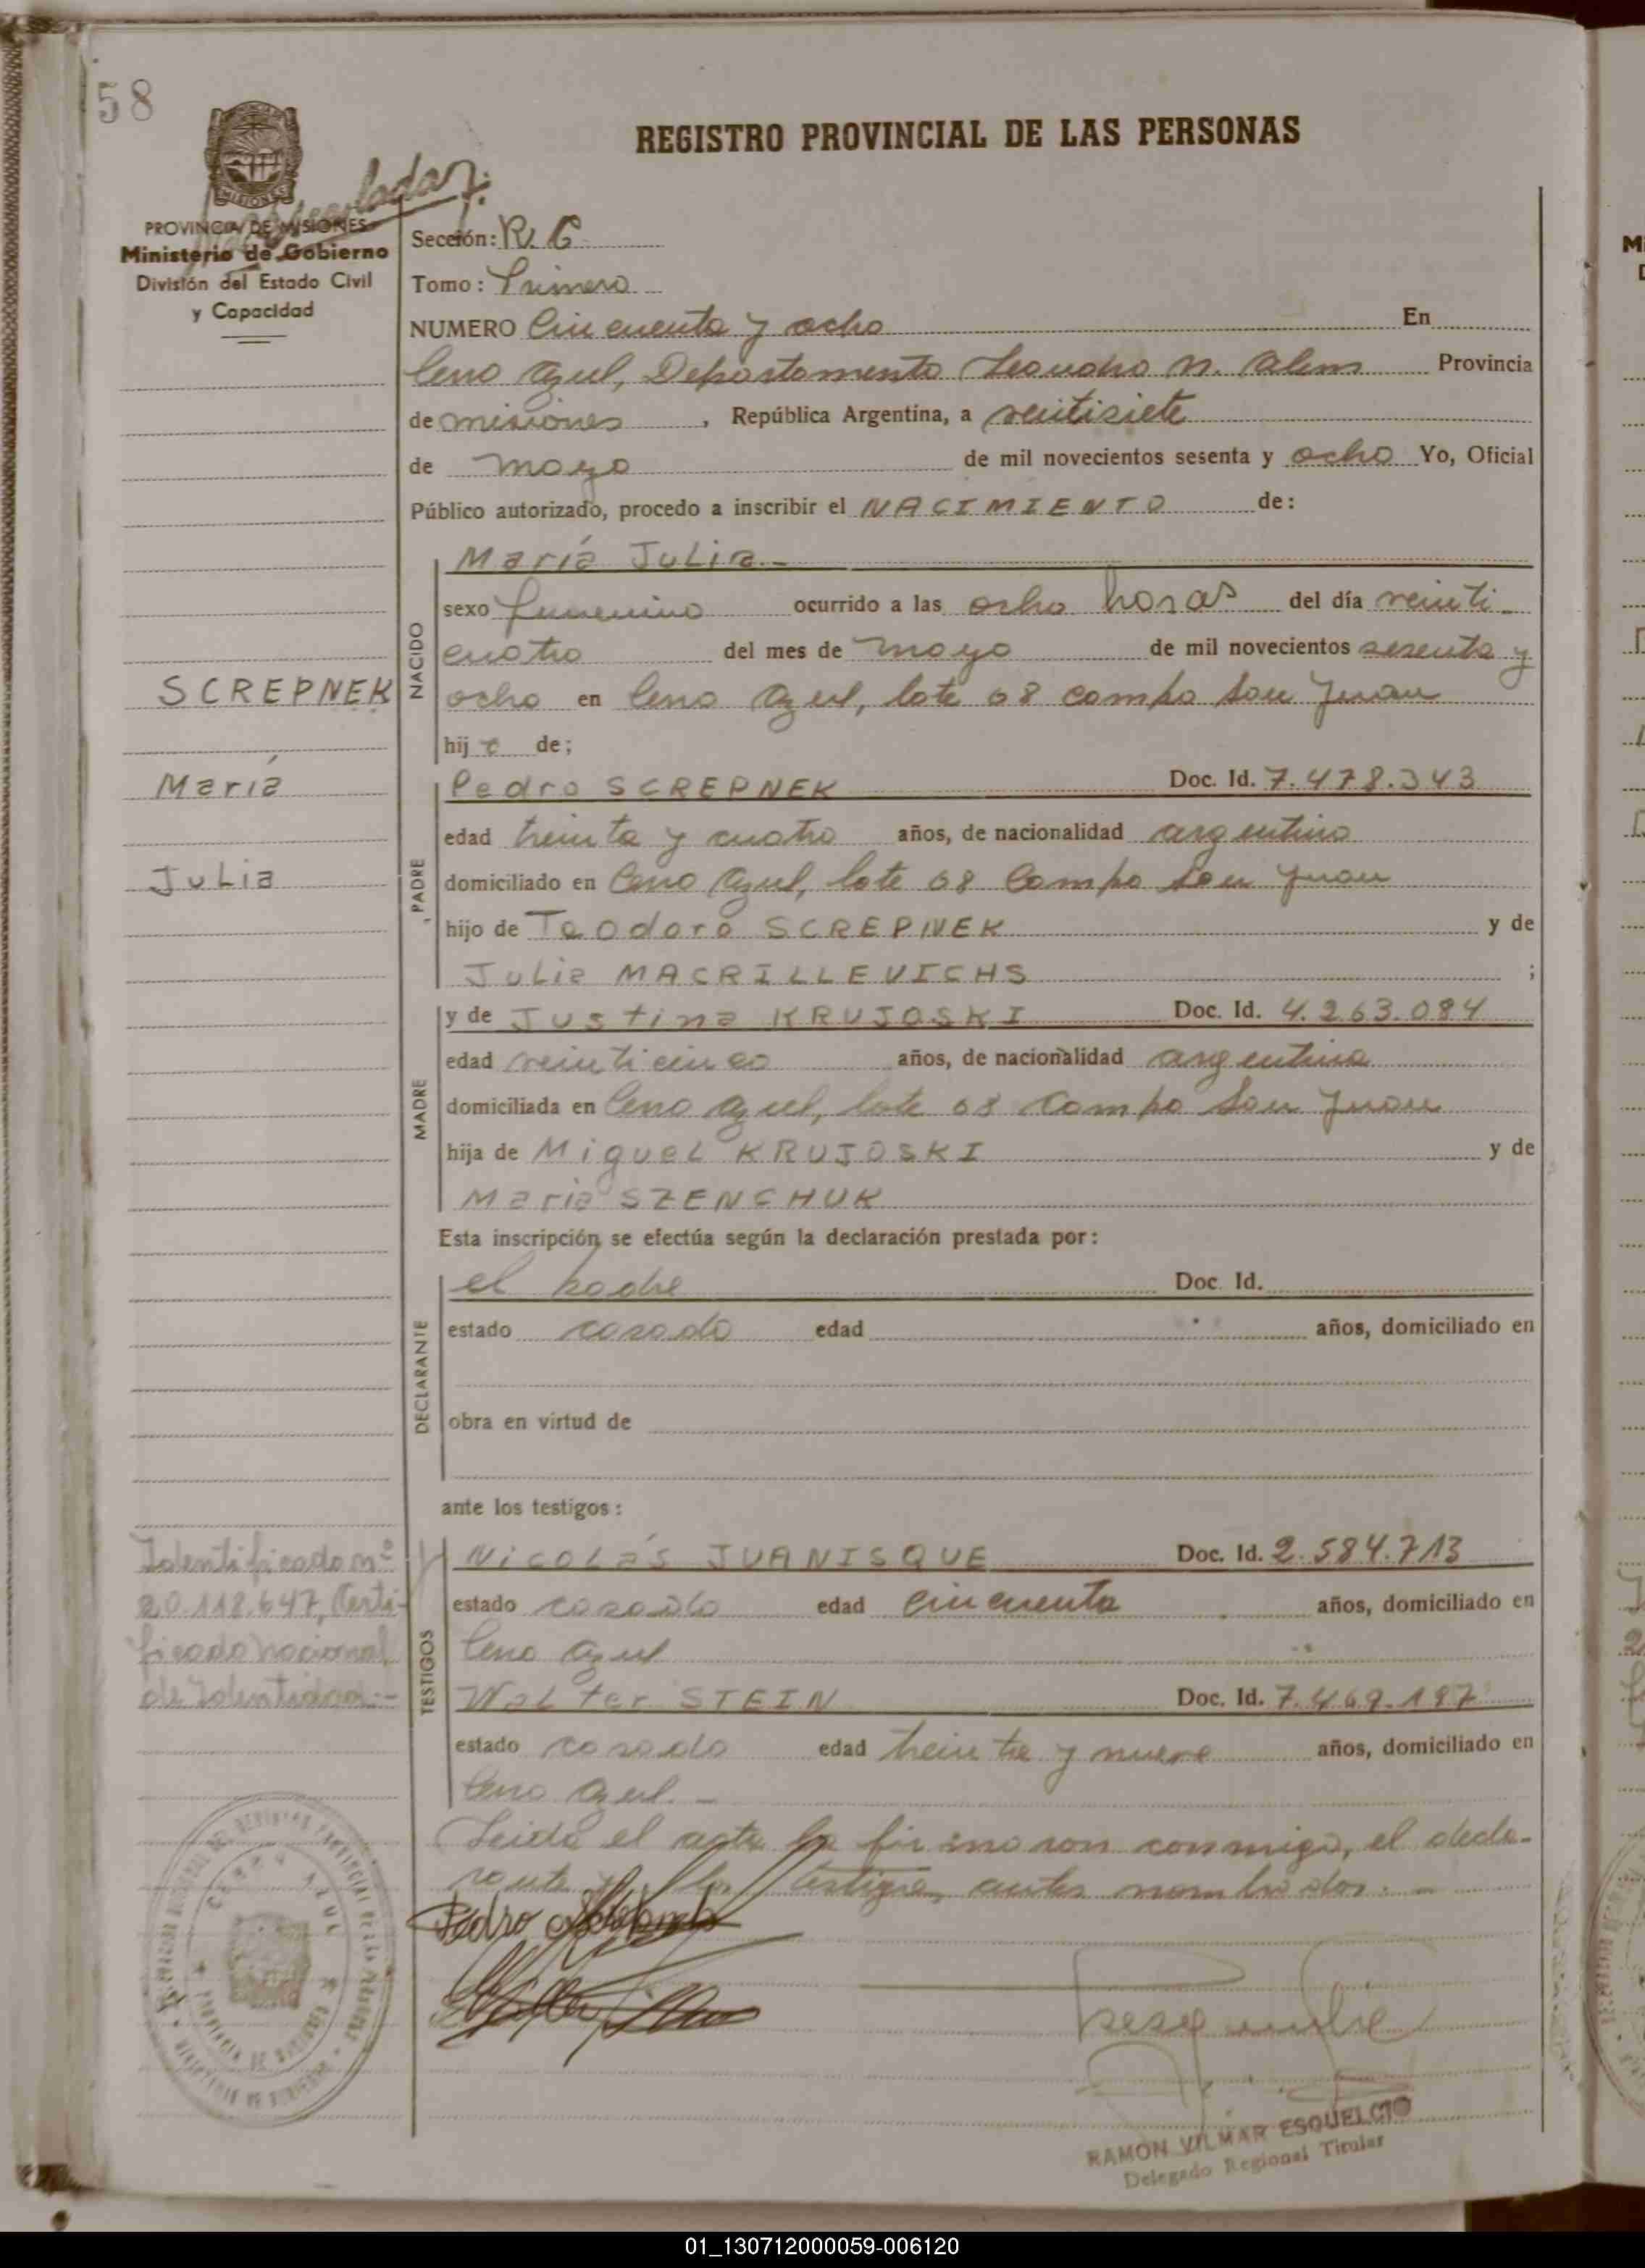 58
REGISTRO PROVINCIAL DE LAS PERSONAS
MISIONES
PROVINCIA DE MISIONES
Ministerio de Gobierno
División del Estado Civil
y Capacidad
Sección: R. C
Tomo: Primero
NUMERO Cincuenta y ocho En
Cerro Azul, Departamento Leandro N. Alem Provincia
de misiones, República Argentina, a veintisiete
de mayo de mil novecientos sesenta y ocho Yo, Oficial
Público autorizado, procedo a inscribir el NACIMIENTO de:
NACIDO
María Julia.-
sexo femenino ocurrido a las ocho horas del día veinti
cuatro del mes de mayo de mil novecientos sesenta y
ocho en Cerro Azul, lote 68 campo San Juan
hij a de;
SCREPNEK
María
Julia
PADRE
Pedro SCREPNEK Doc. Id. 7.478.343
edad treinta y cuatro años, de nacionalidad argentino
domiciliado en Cerro Azul, lote 68 Campo San Juan
hijo de Teodoro SCREPNEK y de
Julia MACRILLEVICHS ;
MADRE
y de Justina KRUJOSKI Doc. Id. 4.263.084
edad veinticinco años, de nacionalidad argentina
domiciliada en Cerro Azul, lote 68 Campo San Juan
hija de Miguel KRUJOSKI y de
Maria SZENCHUK
Esta inscripción se efectúa según la declaración prestada por:
DECLARANTE
el padre Doc. Id.
estado casado edad años, domiciliado en
obra en virtud de
ante los testigos:
TESTIGOS
Nicolás JUANISQUE Doc. Id. 2.584.713
estado casado edad cincuenta años, domiciliado en
Cerro Azul
Walter STEIN Doc. Id. 7.469.197
estado casado edad treinta y nueve años, domiciliado en
Cerro Azul.-
Identificado nº
20.118.647, Certi-
ficado nacional
de Identidad.-
Leida el acta la firmaron conmigo, el decla-
rante y los testigos, antes nombrados.-
Pedro
RAMON VILMAR ESQUELCIO
Delegado Regional Titular
01_130712000059-006120